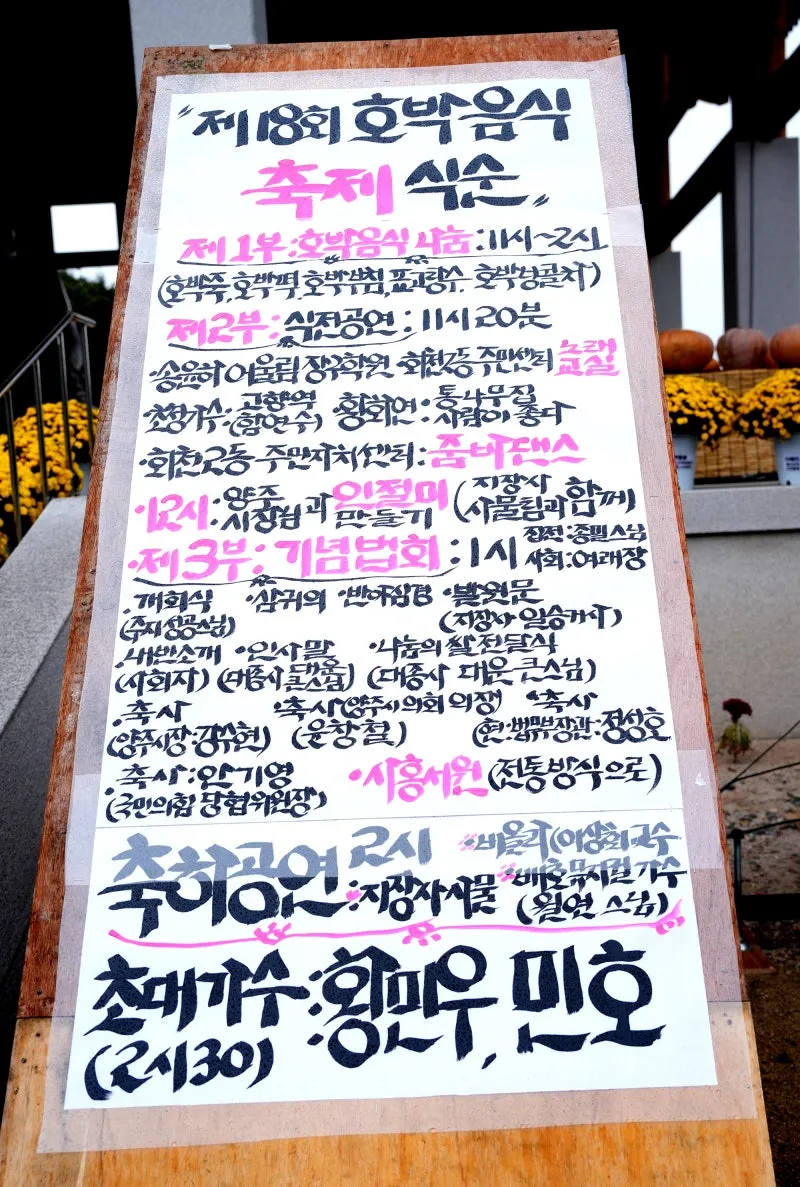 "제18회 호박음식
축제 식순"
제1부:호박음식 나눔:11시~2시
(호박죽, 호박떡, 호박부침, 표고탕수, 호박넝쿨차)
제2부:식전공연:11시20분
·송윤하 어울림 장구학원 ·회천2동 주민센터 노래교실
·초청가수: 고향역 (함연수) 황화연: 통나무집 사람이 좋다
·회천2동 주민자치센터:줌바댄스
·12시:양주시장님과 인절미 만들기 (지장사 사물팀과 함께)
·제3부:기념법회:1시 집전:종밀스님 사회:여래장
·개회식 ·삼귀의 ·반야심경 ·발원문
(주지성공스님) (지장사 일승거사)
·내빈소개 ·인사말 ·나눔의 쌀 전달식
(사회자) (대종사 대운 큰스님) (대종사 대운 큰스님)
·축사 ·축사(양주시의회 의장) ·축사
(양주시장:강수현) (윤창철) (현:법무부장관:정성호
·축사:안기영 ·시흥서원(전통방식으로)
(국민의힘 당협위원장)
축하공연 2시 :비올라(이상희교수
:지장사사물 :배호뮤지컬 가수
(월연 스님)
초대가수:황민우, 민호
(2시30)